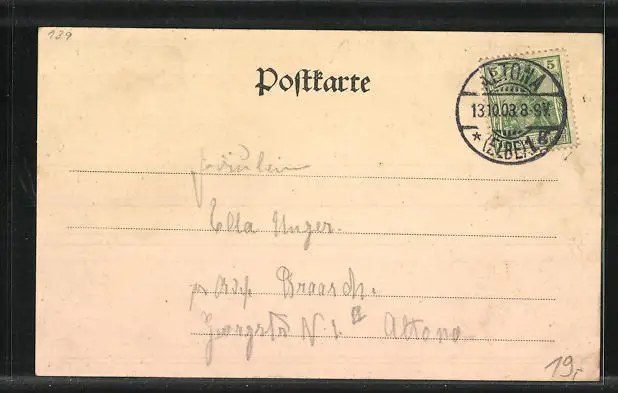 139
Postkarte
5 5
ALTONA
13.10.03.8-9V.
* (ELBE) 1
Fräulein
Ella Unger.
Braasch.
N. 1. II Altona
19,-